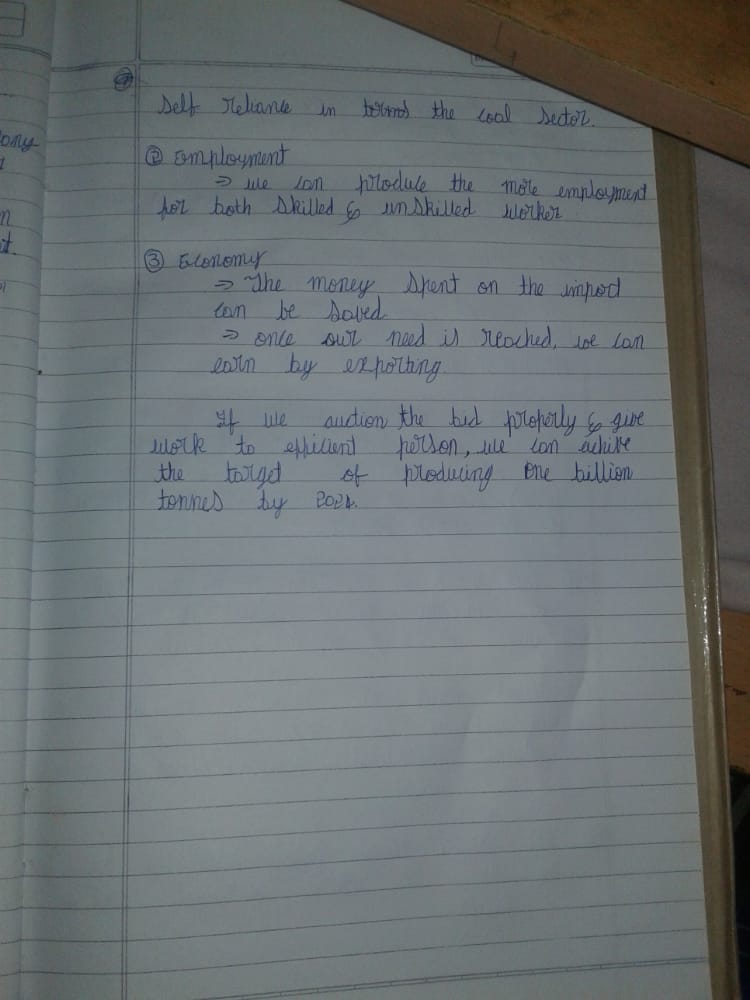 ony
n
t.
Self reliance in terms the coal sector.
② Employment
⇒ we can produce the more employment
for both skilled & unskilled worker
③ Economy
⇒ The money spent on the impod
can be saved
⇒ once our need is reached, we can
earn by exporting
If we auction the bid properly & give
work to efficient person, we can achive
the target of producing One billion
tonnes by 2024.